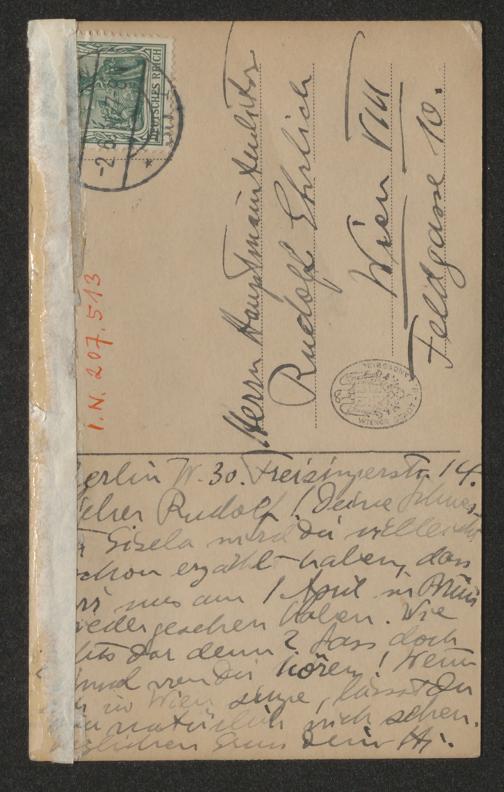 DEUTSCHES REICH
I.N. 207.513
Herrn Hauptmannauditor
Rudolf Ehrlich
Wien VIII
Feldgasse 10.
erlin W. 30. Freisingerstr. 14.
ieber Rudolf! Deine Schwes-
Gisela wird dir vielleicht
schon erzählt haben, dass
wir uns am 1 April in Brünn
wiedergesehen haben. Wie
hts dir denn? Lass doch
mal von dir hören! Wenn
in Wien singe, lässt du
natürlich sich sehen.
erzlichen Gruss Dein